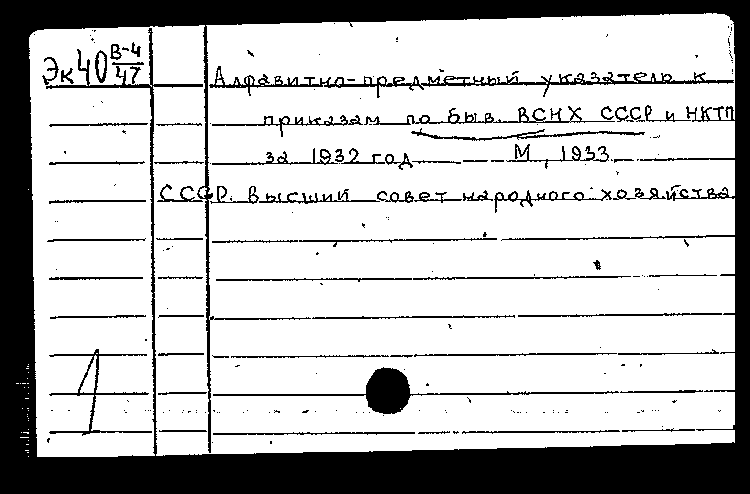 Эк40 В-4/47
Алфавитно-предметный указатель к
приказам по быв. ВСНХ СССР и НКТП
за 1932 год М, 1933
СССР. Высший совет народного хозяйства
1